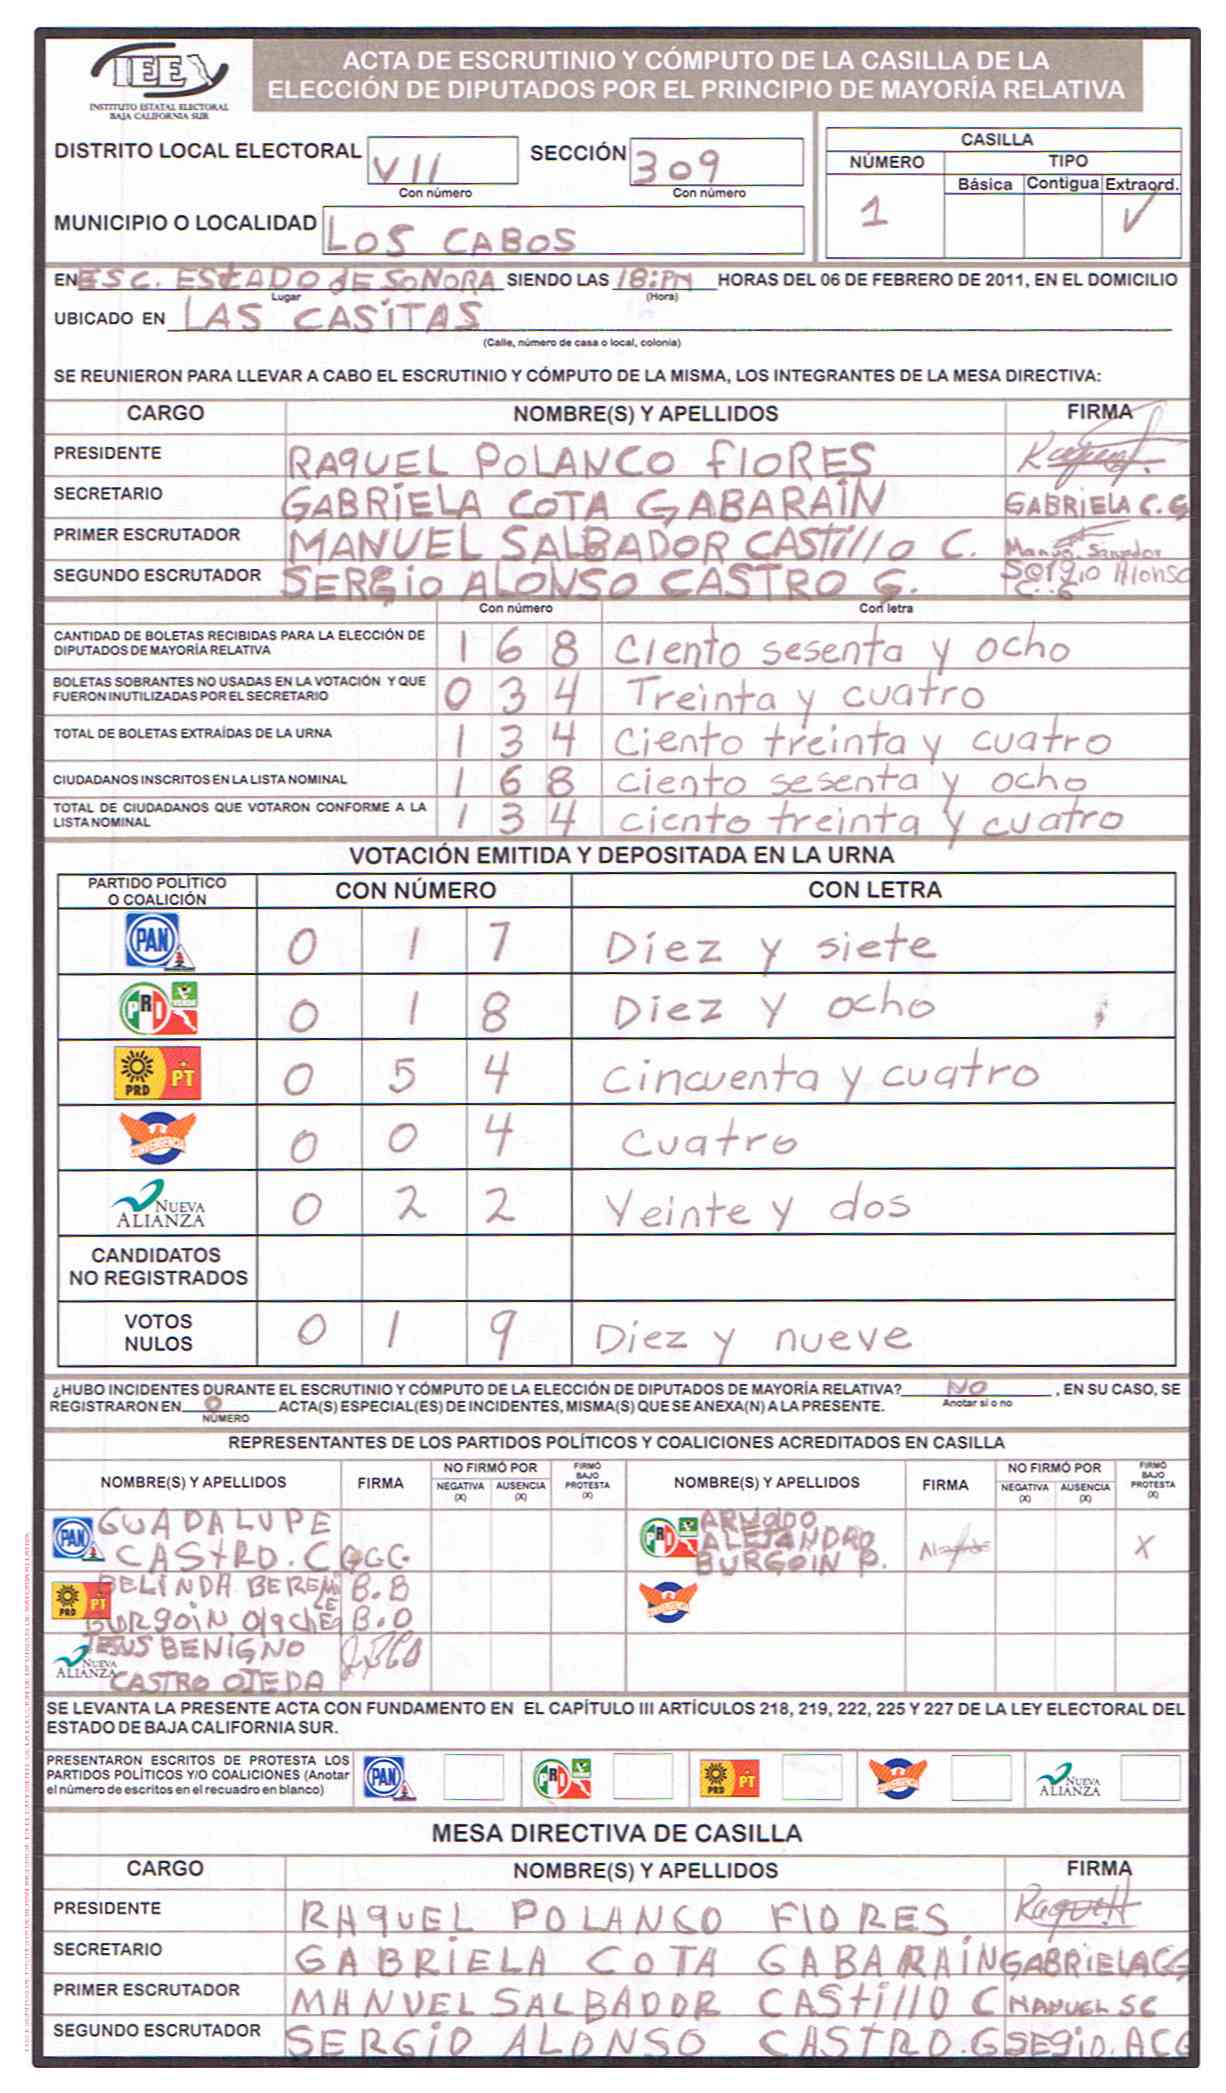 IEE
INSTITUTO ESTATAL ELECTORAL
BAJA CALIFORNIA SUR
ACTA DE ESCRUTINIO Y CÓMPUTO DE LA CASILLA DE LA
ELECCIÓN DE DIPUTADOS POR EL PRINCIPIO DE MAYORÍA RELATIVA
DISTRITO LOCAL ELECTORAL VII SECCIÓN 309
Con número Con número
MUNICIPIO O LOCALIDAD LOS CABOS
CASILLA
NÚMERO TIPO
Básica Contigua Extraord.
1 ✓
EN ESC. ESTADO de SONORA SIENDO LAS 18:PM HORAS DEL 06 DE FEBRERO DE 2011, EN EL DOMICILIO
Lugar (Hora)
UBICADO EN LAS CASITAS
(Calle, número de casa o local, colonia)
SE REUNIERON PARA LLEVAR A CABO EL ESCRUTINIO Y CÓMPUTO DE LA MISMA, LOS INTEGRANTES DE LA MESA DIRECTIVA:
CARGO NOMBRE(S) Y APELLIDOS FIRMA
PRESIDENTE RAQUEL POLANCO FlORES
SECRETARIO GABRIELA COTA GABARAIN GABRIELA C. G
PRIMER ESCRUTADOR MANUEL SALBADOR CASTillo C.
SEGUNDO ESCRUTADOR SERGIO ALONSO CASTRO G. Sergio Alonso
Con número Con letra
CANTIDAD DE BOLETAS RECIBIDAS PARA LA ELECCIÓN DE
DIPUTADOS DE MAYORÍA RELATIVA 1 6 8 Ciento sesenta y ocho
BOLETAS SOBRANTES NO USADAS EN LA VOTACIÓN Y QUE
FUERON INUTILIZADAS POR EL SECRETARIO 0 3 4 Treinta y cuatro
TOTAL DE BOLETAS EXTRAÍDAS DE LA URNA 1 3 4 Ciento treinta y cuatro
CIUDADANOS INSCRITOS EN LA LISTA NOMINAL 1 6 8 ciento sesenta y ocho
TOTAL DE CIUDADANOS QUE VOTARON CONFORME A LA
LISTA NOMINAL 1 3 4 ciento treinta y cuatro
VOTACIÓN EMITIDA Y DEPOSITADA EN LA URNA
PARTIDO POLÍTICO
O COALICIÓN CON NÚMERO CON LETRA
PAN 0 1 7 Diez y siete
PRI VERDE 0 1 8 Diez y ocho
PRD PT 0 5 4 Cincuenta y cuatro
CONVERGENCIA 0 0 4 Cuatro
NUEVA ALIANZA 0 2 2 Veinte y dos
CANDIDATOS
NO REGISTRADOS
VOTOS
NULOS 0 1 9 Diez y nueve
¿HUBO INCIDENTES DURANTE EL ESCRUTINIO Y CÓMPUTO DE LA ELECCIÓN DE DIPUTADOS DE MAYORÍA RELATIVA? NO , EN SU CASO, SE
Anotar sí o no
REGISTRARON EN 0 ACTA(S) ESPECIAL(ES) DE INCIDENTES, MISMA(S) QUE SE ANEXA(N) A LA PRESENTE.
NÚMERO
REPRESENTANTES DE LOS PARTIDOS POLÍTICOS Y COALICIONES ACREDITADOS EN CASILLA
NOMBRE(S) Y APELLIDOS FIRMA NO FIRMÓ POR NEGATIVA (X) AUSENCIA (X) FIRMÓ BAJO PROTESTA (X) NOMBRE(S) Y APELLIDOS FIRMA NO FIRMÓ POR NEGATIVA (X) AUSENCIA (X) FIRMÓ BAJO PROTESTA (X)
PAN GUADALUPE
CASTRO. C GCC.
PRI VERDE ARNOLDO
ALEJANDRO
BURGOIN P. X
PRD PT BELINDA BERENI
CE B.B
BURGOIN Olachea B.O
CONVERGENCIA
NUEVA ALIANZA JESUS BENIGNO
CASTRO OJEDA
SE LEVANTA LA PRESENTE ACTA CON FUNDAMENTO EN EL CAPÍTULO III ARTÍCULOS 218, 219, 222, 225 Y 227 DE LA LEY ELECTORAL DEL
ESTADO DE BAJA CALIFORNIA SUR.
PRESENTARON ESCRITOS DE PROTESTA LOS
PARTIDOS POLÍTICOS Y/O COALICIONES (Anotar
el número de escritos en el recuadro en blanco)
PAN PRI VERDE PRD PT CONVERGENCIA NUEVA ALIANZA
MESA DIRECTIVA DE CASILLA
CARGO NOMBRE(S) Y APELLIDOS FIRMA
PRESIDENTE RAQUEL POLANCO FlORES
SECRETARIO GABRIELA COTA GABARAIN GABRIELACG
PRIMER ESCRUTADOR MANUEL SALBADOR CAStillO C MANUEL SC
SEGUNDO ESCRUTADOR SERGIO ALONSO CASTRO.G SEGIO.ACG